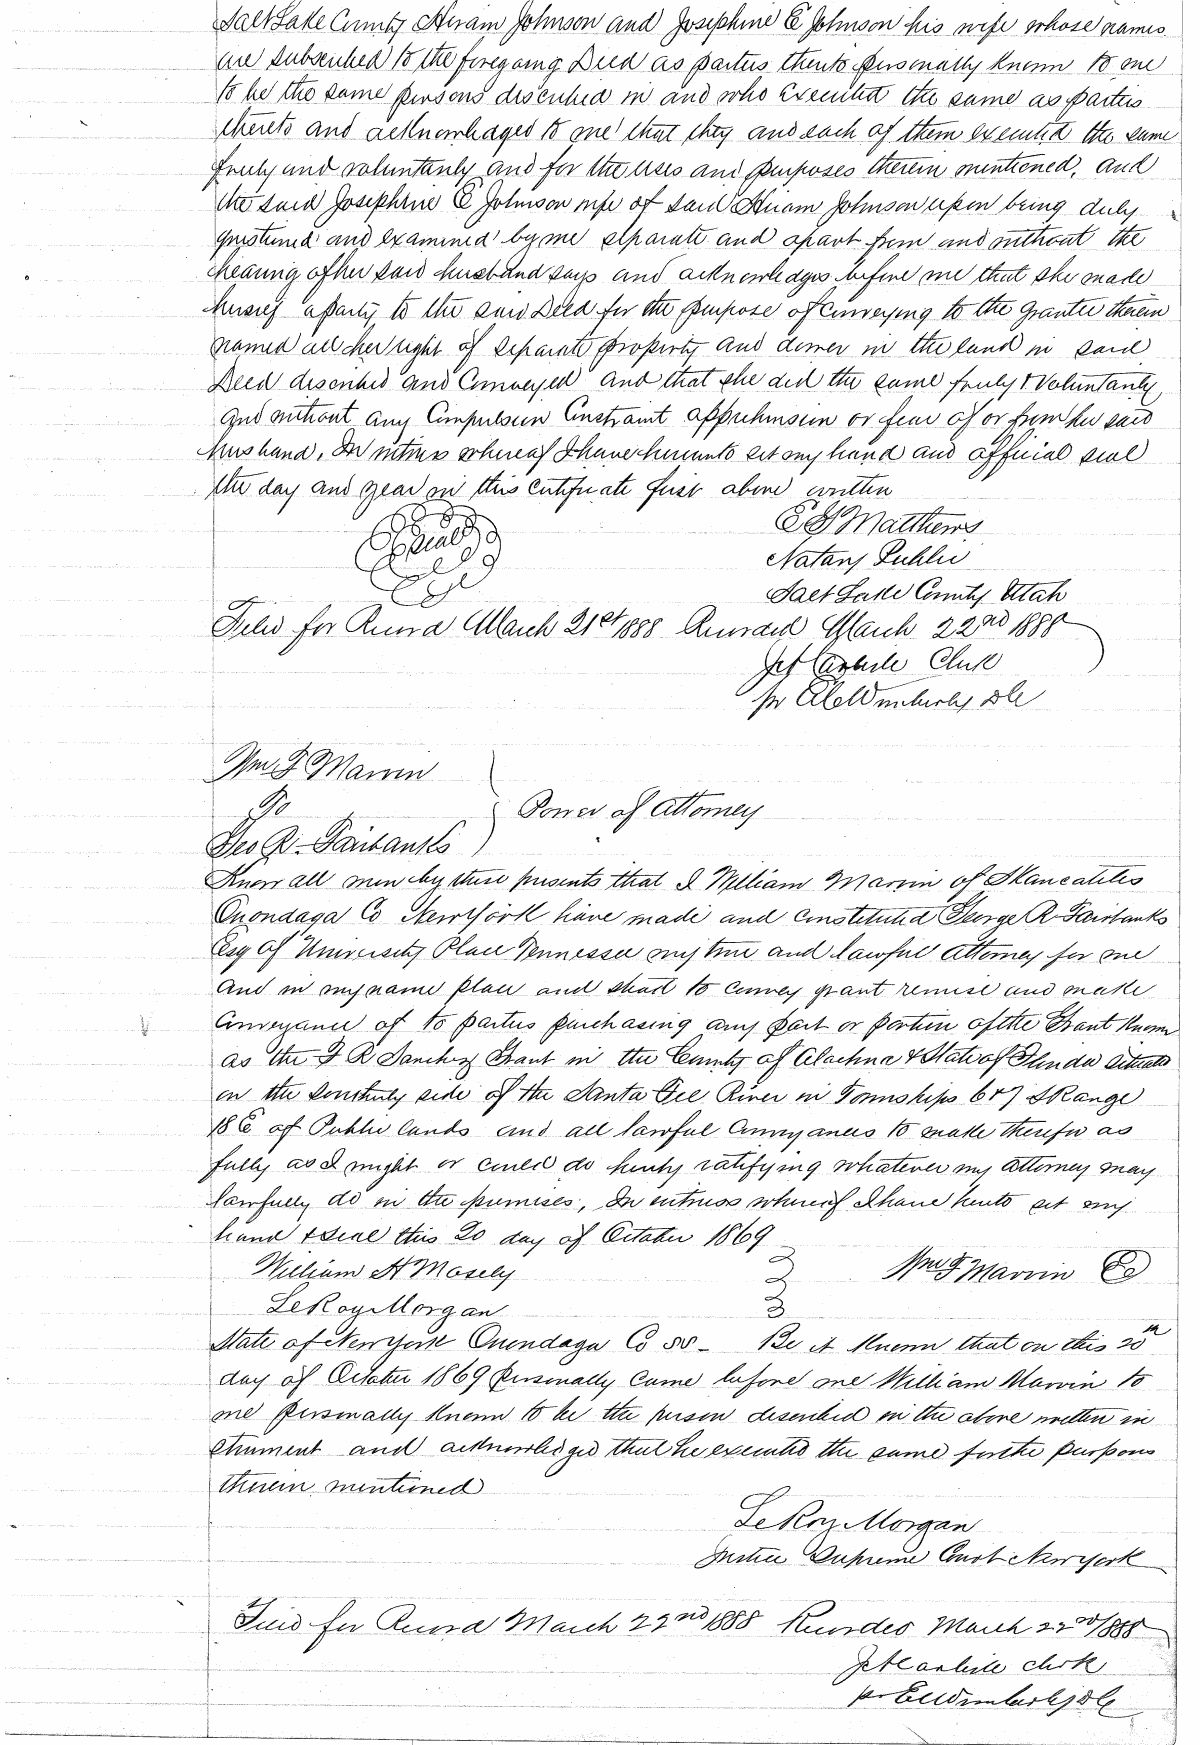 Salt Lake County Hiram Johnson and Josephine E Johnson his wife whose names
are subscribed to the foregoing Deed as parties thereto personally known to me
to be the same persons described in and who Executed the same as parties
thereto and acknowledged to me that they and each of them executed the same
freely and voluntarily and for the uses and purposes therein mentioned, and
the said Josephine E Johnson wife of said Hiram Johnson upon being duly
questioned and examined by me separate and apart from and without the
hearing of her said husband says and acknowledges before me that she made
herself a party to the said Deed for the purpose of Conveying to the Grantee therein
named all her right of separate property and dower in the land in said
Deed described and Conveyed and that she did the same freely & Voluntarily
and without any Compulsion Constraint apprehension or fear of or from her said
husband, In witness whereof I have hereunto set my hand and official seal
the day and year in this Certificate first above written
Seal
E G Matthews
Notary Public
Salt Lake County Utah
Filed for Record March 21st 1888 Recorded March 22nd 1888
Clerk
pr DC
Wm F Marvin
To
Geo R. Fairbanks
Power of Attorney
Know all men by these presents that I William Marvin of Skaneateles
Onondaga Co New York have made and Constituted George R. Fairbanks
Esq of University Place Tennessee my true and lawful Attorney for me
and in my name place and stead to convey grant remise and make
Conveyance of to parties purchasing any part or portion of the Grant Known
as the F R Sanchez Grant in the County of Alachua & State of Florida situate
on the southerly side of the Santa Fee River in Townships 6 & 7 S Range
18 E of Public lands and all lawful Conveyances to make therefor as
fully as I might or could do hereby ratifying whatever my Attorney may
lawfully do in the premises, In witness whereof I have hereto set my
hand & seal this 20 day of October 1869
William H Mosely
Wm F Marvin
LeRoy Morgan
State of New York Onondaga Co ss - Be it Known that on this 20th
day of October 1869 personally came before me William Marvin to
me personally Known to be the person described in the above written in
strument and acknowledged that he executed the same for the purposes
therein mentioned
LeRoy Morgan
Justice Supreme Court New York
Filed for Record March 22nd 1888 Recorded March 22nd/1888
clerk
pr DC